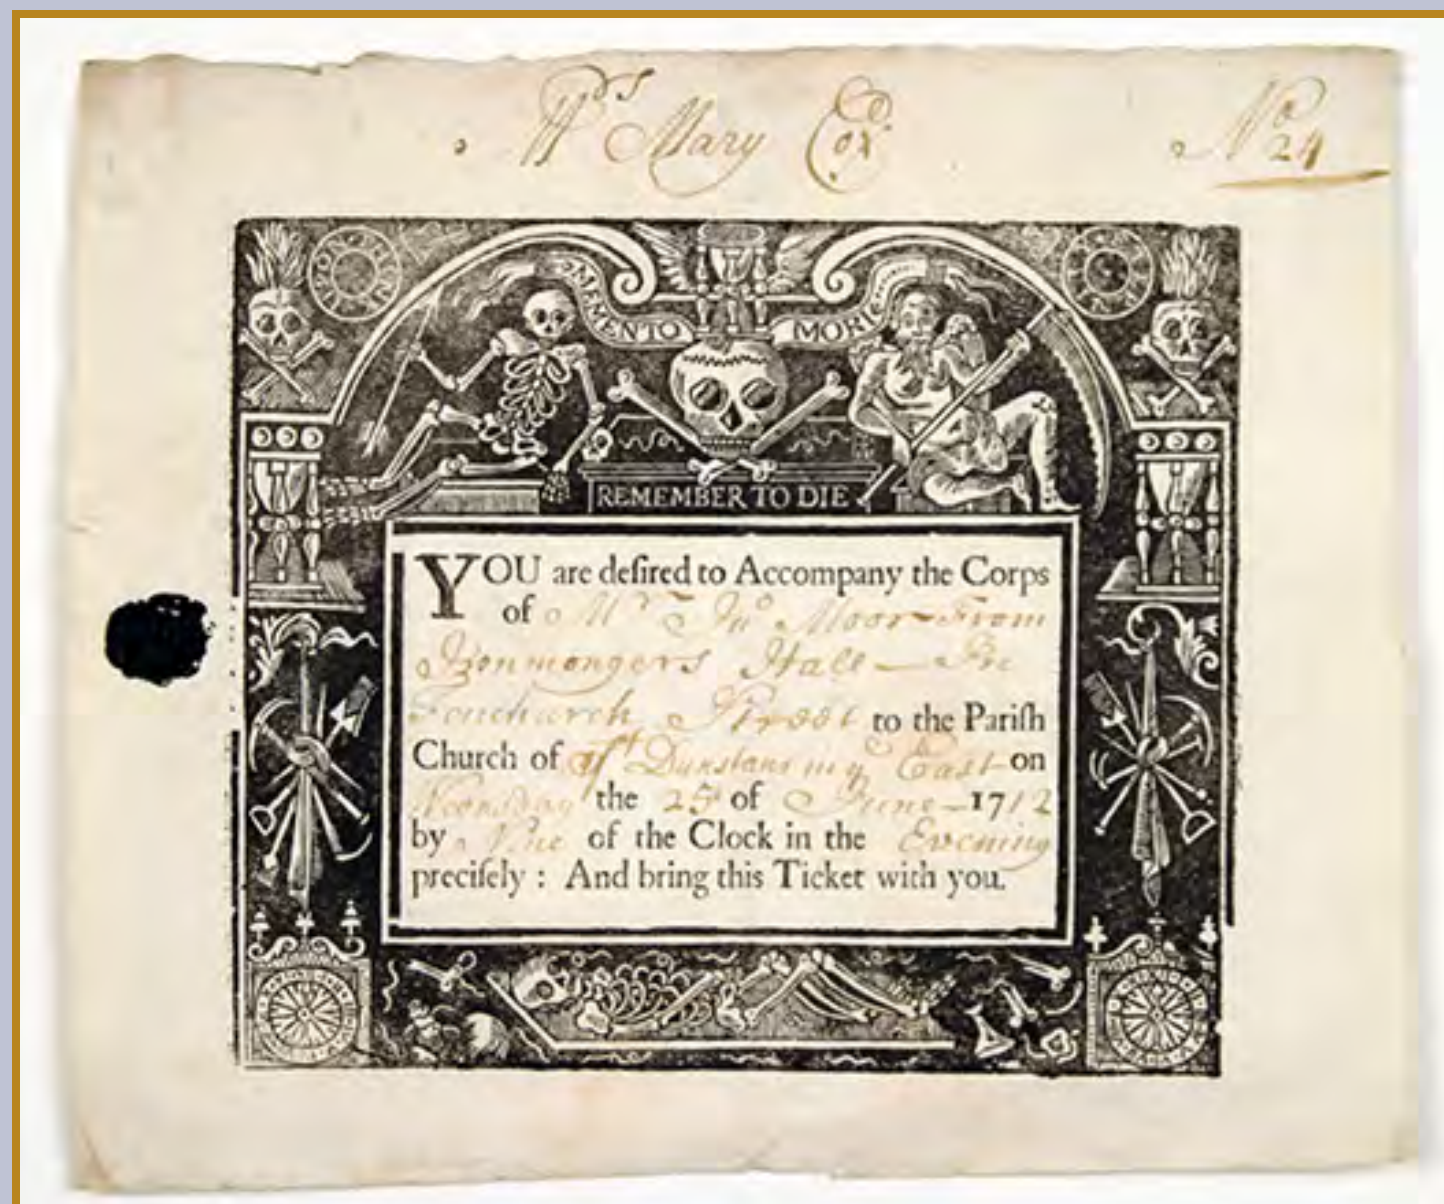 Wds Mary Cox
No 24
MEMENTO MORI
REMEMBER TO DIE
YOU are deſired to Accompany the Corps
of Mr Jno Moor From
Ironmongers Hall — In
Fenchurch Street to the Pariſh
Church of St Dunstans in ye East on
the 25 of June — 1712
by Nine of the Clock in the Evening
preciſely : And bring this Ticket with you.